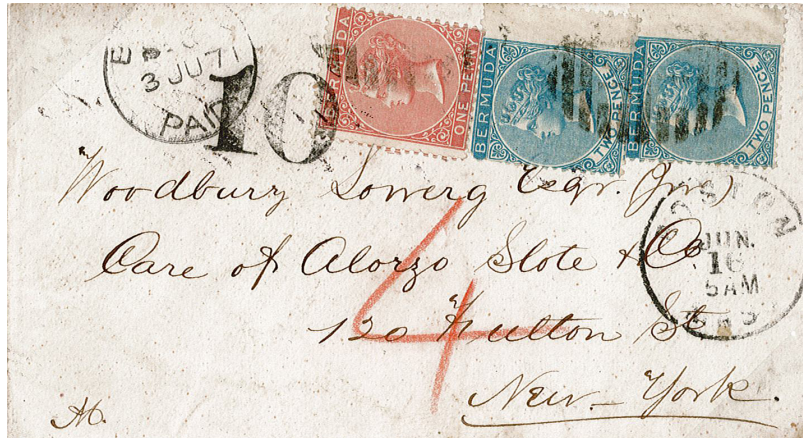 3 JU 71
PAID
10
BERMUDA ONE PENNY
BERMUDA TWO PENCE
BERMUDA TWO PENCE
Woodbury Lowerg Esqr. (Jnr)
Care of Alonzo Slote & Co.
120 Fulton St
New-York.
4
BOSTON
JUN.
16
5AM